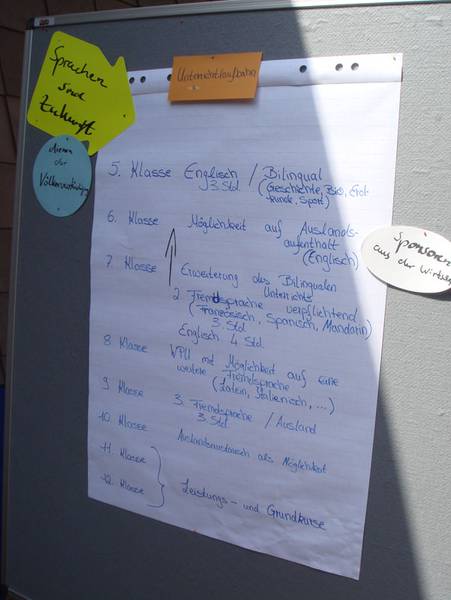 Sprachen
sind
Zukunft
Unterrichtslaufbahn
dienen
der
Völkerverständigung
5. Klasse Englisch / Bilingual
3 Std. (Geschichte, Bio, Erd-
kunde, Sport)
6. Klasse Möglichkeit auf Auslands-
aufenthalt
(Englisch)
7. Klasse Erweiterung des Bilingualen
Unterrichts
2. Fremdsprache verpflichtend
(Französisch, Spanisch, Mandarin)
3. Std
Englisch 4 Std.
8 Klasse WPU mit Möglichkeit auf eine
weitere Fremdsprache
(Latein, Italienisch, ...)
9. Klasse 3. Fremdsprache / Ausland
3. Std
10. Klasse Auslandsaustausch als Möglichkeit
11. Klasse
12. Klasse Leistungs- und Grundkurse
Sponsoren
aus der